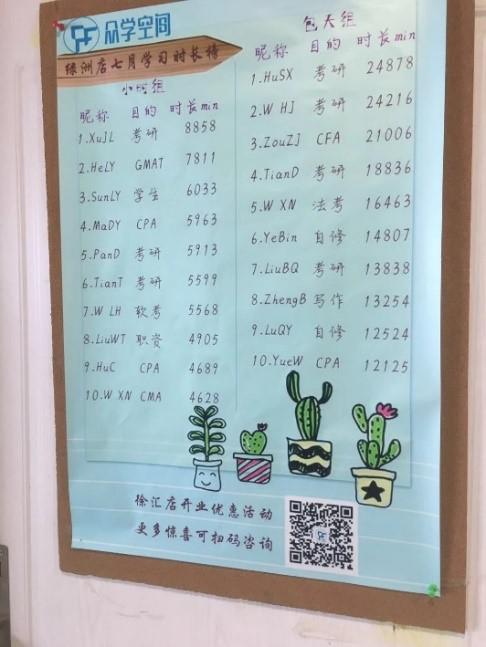 众学空间
绿洲店七月学习时长榜
小时组
昵称 目的 时长min
1.XuJL 考研 8858
2.HeLY GMAT 7811
3.SunLY 学生 6033
4.MaDY CPA 5963
5.PanD 考研 5913
6.TianT 考研 5599
7.W LH 软考 5568
8.LiuWT 职资 4905
9.HuC CPA 4689
10.W XN CMA 4628
包天组
昵称 目的 时长min
1.HuSX 考研 24878
2.W HJ 考研 24216
3.ZouZJ CFA 21006
4.TianD 考研 18836
5.W XN 法考 16463
6.YeBin 自修 14807
7.LiuBQ 考研 13838
8.ZhengB 写作 13254
9.LuQY 自修 12524
10.YueW CPA 12125
徐汇店开业优惠活动
更多惊喜可扫码咨询